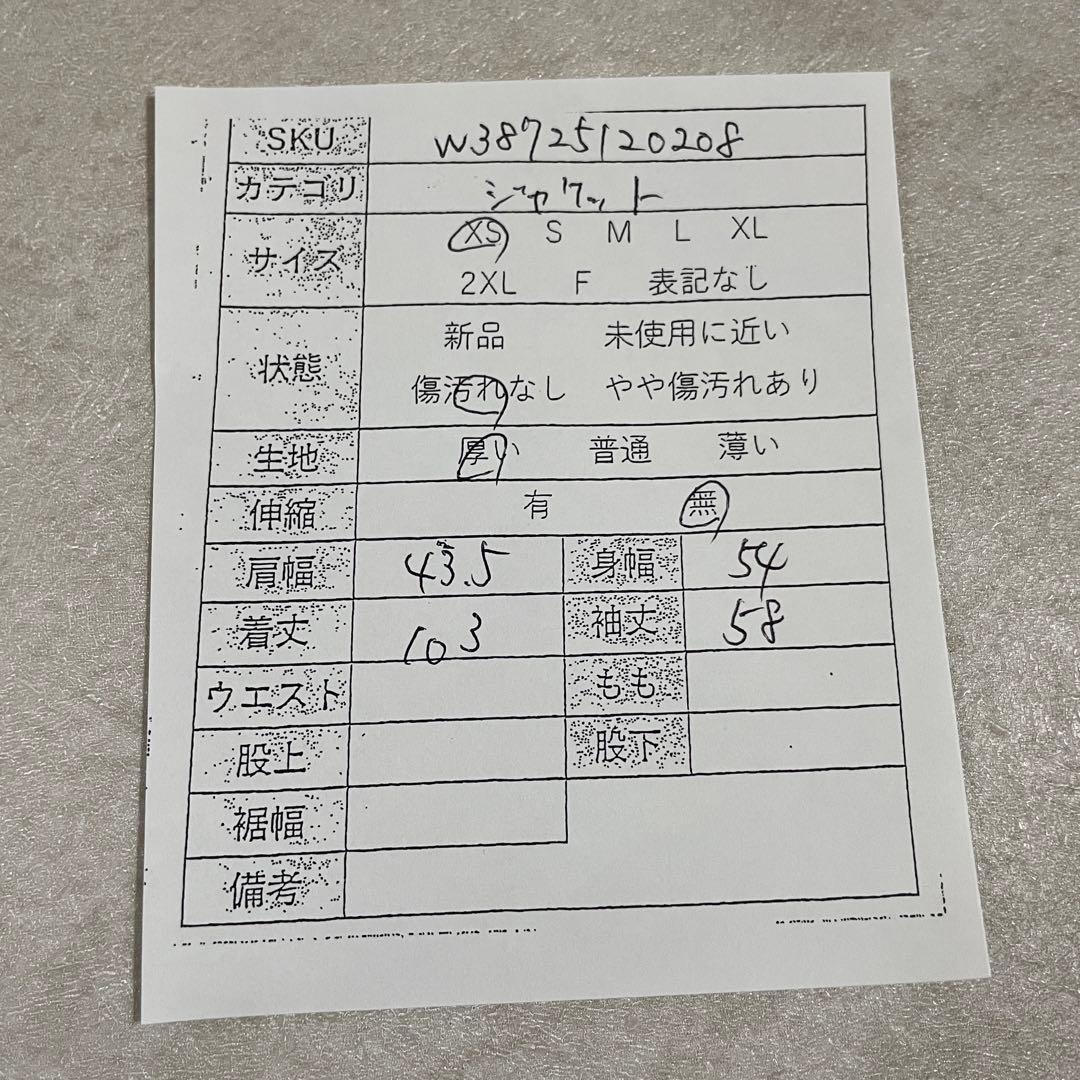 SKU W38725120208
カテゴリ ジャケット
サイズ XS S M L XL
2XL F 表記なし
状態 新品 未使用に近い
傷汚れなし やや傷汚れあり
生地 厚い 普通 薄い
伸縮 有 無
肩幅 43.5 身幅 54
着丈 103 袖丈 58
ウエスト もも
股上 股下
裾幅
備考